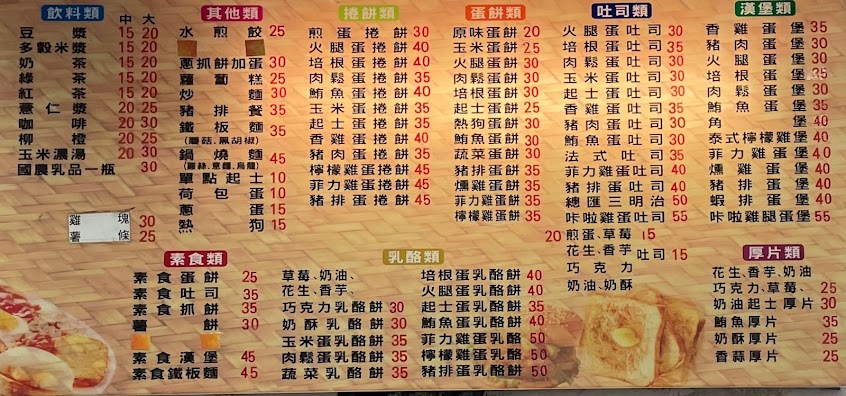 飲料類
中 大
豆漿 15 20
多穀米漿 15 20
奶茶 15 20
綠茶 15 20
紅茶 15 20
薏仁漿 20 25
咖啡 20 30
柳橙 20 25
玉米濃湯 20 30
國農乳品一瓶 30
雞塊 30
薯條 25
其他類
水煎餃 25
蔥抓餅加蛋 30
蘿蔔糕 25
炒麵 30
豬排餐 35
鐵板麵 35
(蘑菇.黑胡椒)
鍋燒麵 45
(冬粉絲.意麵.烏龍)
單點起士 10
荷包蛋 10
蔥蛋 15
熱狗 15
捲餅類
煎蛋捲餅 30
火腿蛋捲餅 40
培根蛋捲餅 40
肉鬆蛋捲餅 35
鮪魚蛋捲餅 40
玉米蛋捲餅 35
起士蛋捲餅 35
香雞蛋捲餅 40
豬肉蛋捲餅 35
檸檬雞蛋捲餅 45
菲力雞蛋捲餅 45
豬排蛋捲餅 45
蛋餅類
原味蛋餅 20
玉米蛋餅 25
火腿蛋餅 30
肉鬆蛋餅 30
培根蛋餅 30
起士蛋餅 25
熱狗蛋餅 30
鮪魚蛋餅 30
蔬菜蛋餅 30
豬排蛋餅 35
燻雞蛋餅 35
菲力雞蛋餅 35
檸檬雞蛋餅 35
吐司類
火腿蛋吐司 30
培根蛋吐司 30
肉鬆蛋吐司 30
玉米蛋吐司 30
香雞蛋吐司 35
豬肉蛋吐司 30
鮪魚蛋吐司 30
法式吐司 35
菲力雞蛋吐司 40
豬排蛋吐司 40
總匯三明治 50
咔啦雞蛋吐司 55
20 煎蛋、草莓 15
花生、香芋 吐司 15
巧克力
奶油、奶酥
漢堡類
香雞蛋堡 35
豬肉蛋堡 30
火腿蛋堡 30
培根蛋堡 35
肉鬆蛋堡 30
鮪魚蛋堡 35
角堡 40
泰式檸檬雞堡 40
菲力雞蛋堡 40
燻雞蛋堡 40
豬排蛋堡 40
蝦排蛋堡 40
咔啦雞腿蛋堡 55
素食類
素食蛋餅 25
素食吐司 35
素食抓餅 35
薯餅 30
素食漢堡 45
素食鐵板麵 45
乳酪類
草莓、奶油、
花生、香芋、
巧克力乳酪餅 30
奶酥乳酪餅 30
玉米蛋乳酪餅 35
肉鬆蛋乳酪餅 35
蔬菜乳酪餅 35
培根蛋乳酪餅 40
火腿蛋乳酪餅 40
起士蛋乳酪餅 40
鮪魚蛋乳酪餅 40
菲力雞蛋乳酪 50
檸檬雞蛋乳酪 50
豬排蛋乳酪餅 50
厚片類
花生、香芋、奶油
巧克力、草莓、 25
奶油起士厚片 30
鮪魚厚片 35
奶酥厚片 25
香蒜厚片 25